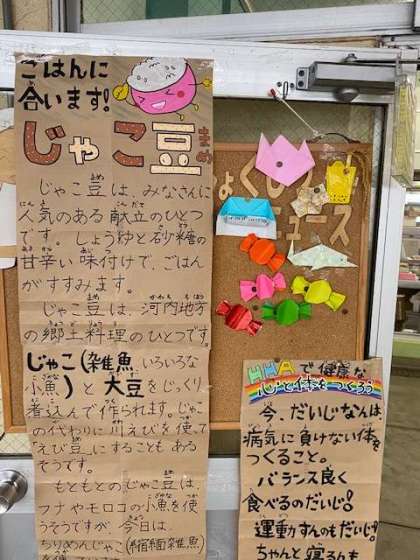 ごはんに
合います!
じゃこ豆
まめ
じゃこ豆は、みなさんに
人気のある献立のひとつ
です。しょうゆと砂糖の
甘辛い味付けで、ごはん
がすすみます。
じゃこ豆は、河内地方
の郷土料理のひとつです。
じゃこ(雑魚、いろいろな
小魚)と大豆をじっくり
煮込んで作られます。じゃこ
の代わりに川えびを使って
「えび豆」にすることもある
そうです。
もともとのじゃこ豆は、
フナやモロコの小魚を使
うそうですが、今日は、
ちりめんじゃこ(縮緬雑魚)
ュース
HHAで健康な
心と体をつくろう
今、だいじなんは、
病気に負けない体を
つくること。
バランス良く
食べるのだいじ!
運動すんのもだいじ!
ちゃんと寝るんも